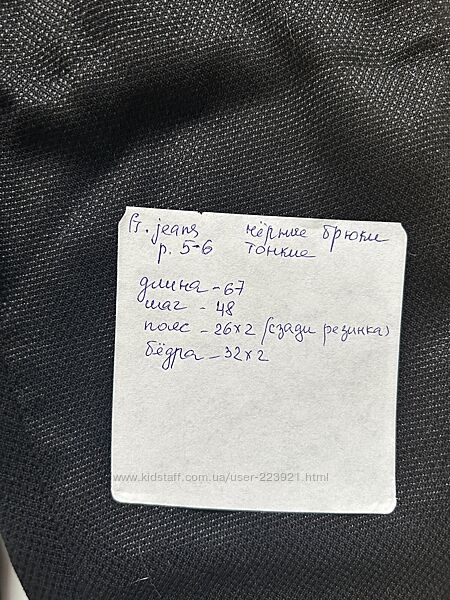 G. jeans чёрные брюки
р. 5-6 тонкие
длина - 67
шаг - 48
пояс - 26×2 (сзади резинка)
бёдра - 32×2
www.kidstaff.com.ua/user-223921.html